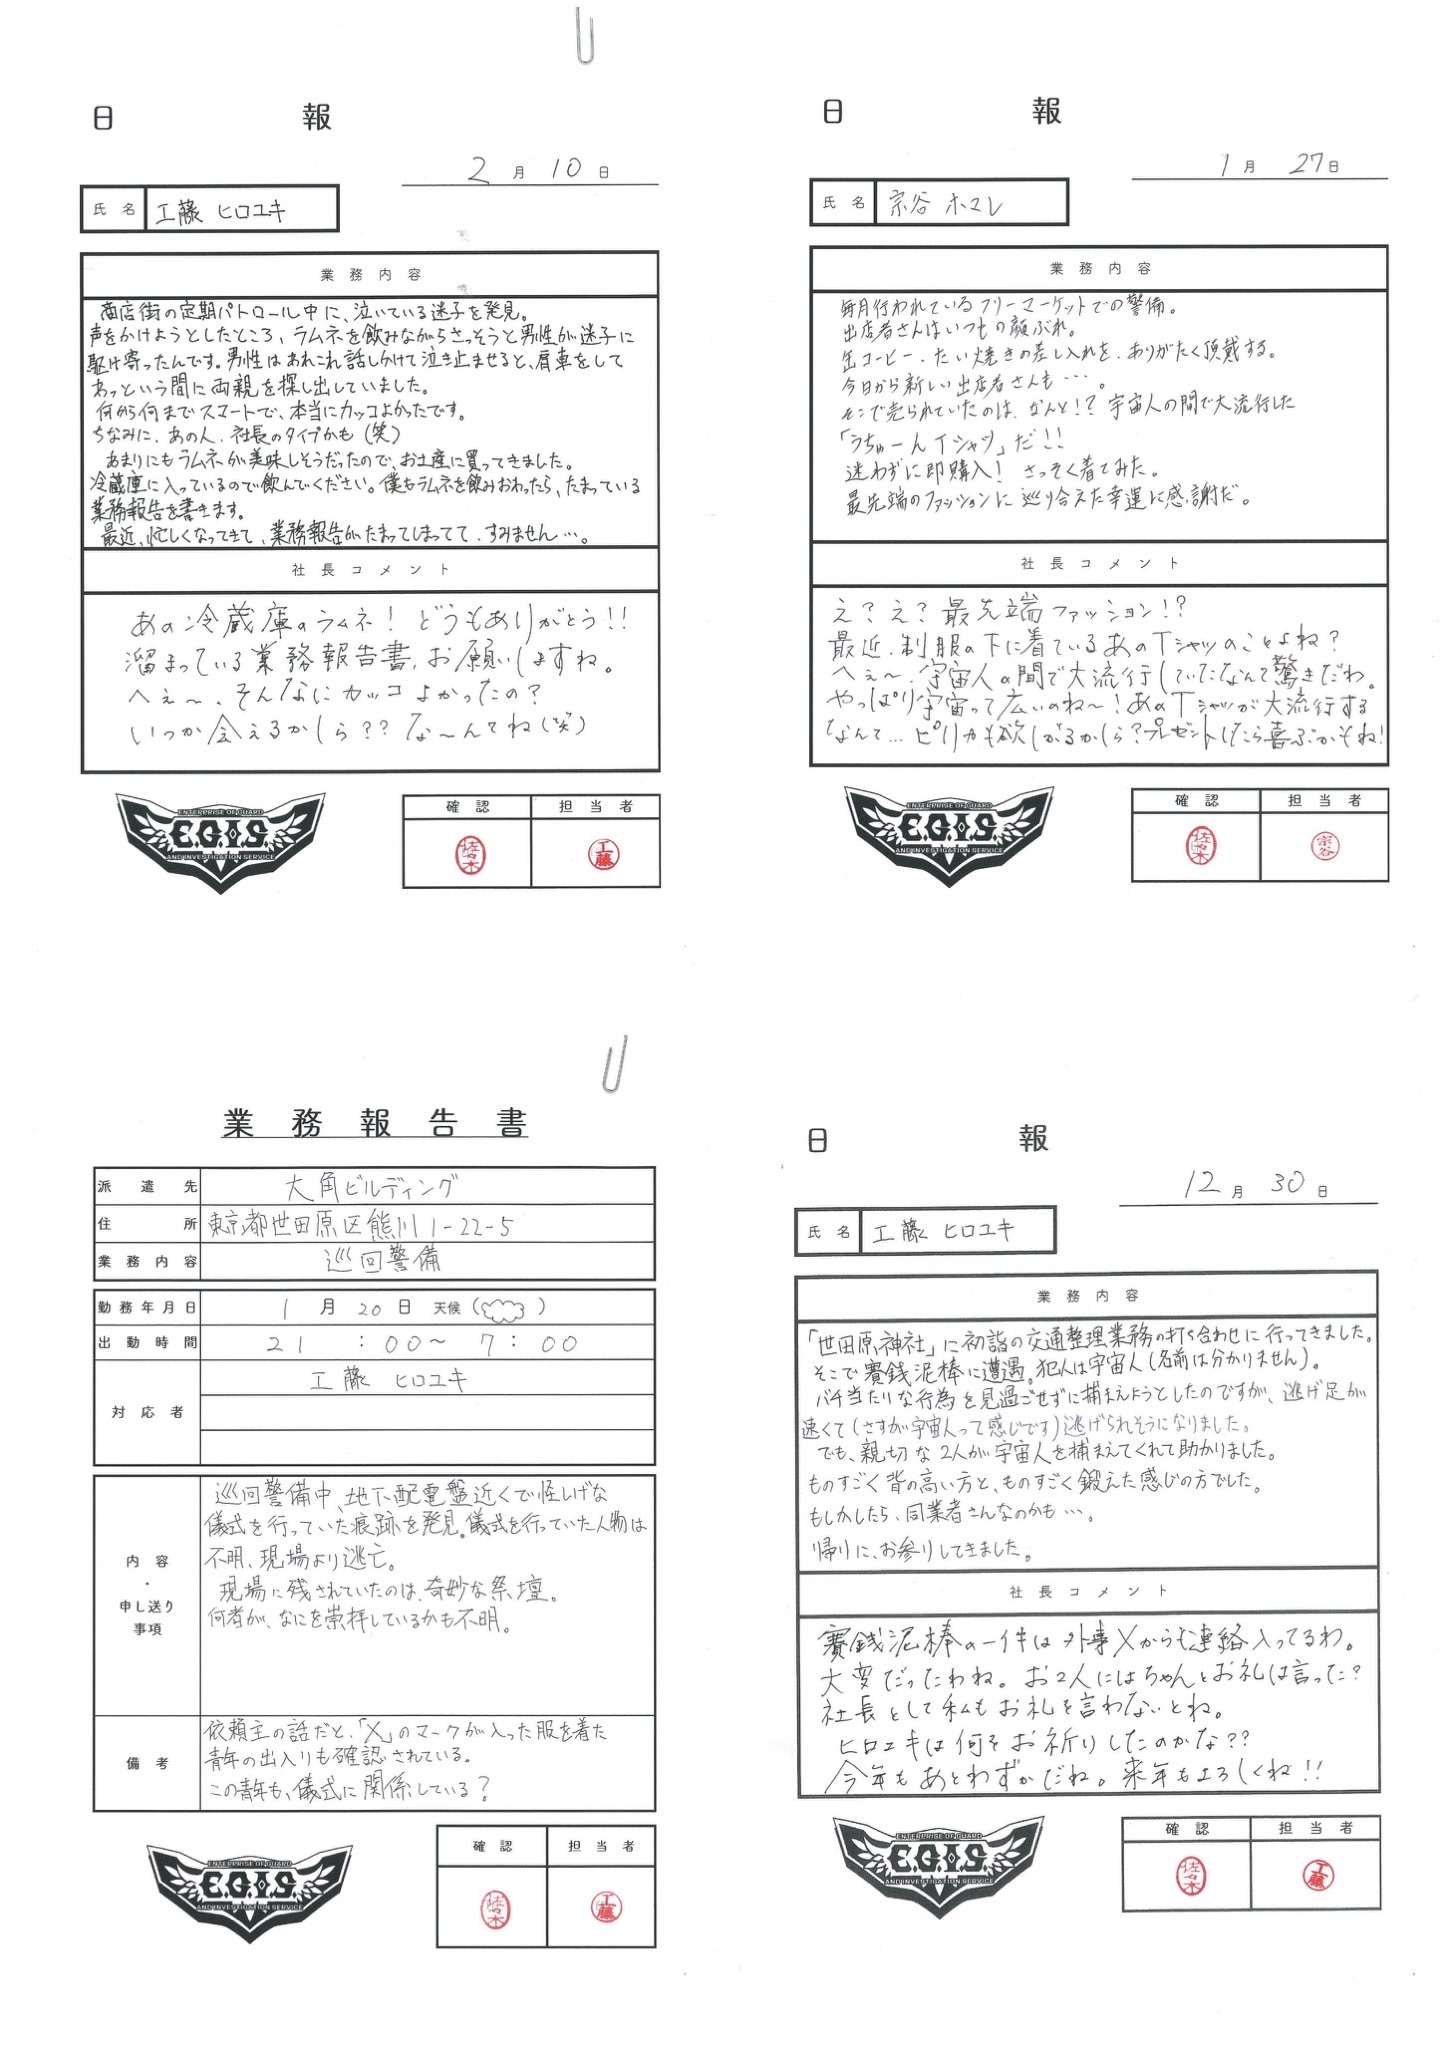 日報
2月10日
氏名 工藤 ヒロユキ
業務内容
商店街の定期パトロール中に、泣いている迷子を発見。
声をかけようとしたところ、ラムネを飲みながらさっそうと男性が迷子に
駆け寄ったんです。男性はあれこれ話しかけて泣き止ませると、肩車をして
あっという間に両親を探し出していました。
何から何までスマートで、本当にカッコよかったです。
ちなみに、あの人、社長のタイプかも(笑)
あまりにもラムネが美味しそうだったので、お土産に買ってきました。
冷蔵庫に入っているので飲んでください。僕もラムネを飲みおわったら、たまっている
業務報告を書きます。
最近、忙しくなってきて、業務報告がたまってしまってて、すみません…。
社長コメント
あの冷蔵庫のラムネ! どうもありがとう!!
溜まっている業務報告書、お願いしますね。
へぇ〜、そんなにカッコよかったの?
いつか会えるかしら?? な〜んてね(笑)
ENTERPRISE OF GUARD
E.G.I.S.
AND INVESTIGATION SERVICE
確認 担当者
佐々木 工藤
日報
1月27日
氏名 宗谷 ホマレ
業務内容
毎月行われているフリーマーケットでの警備。
出店者さんはいつもの顔ぶれ。
缶コーヒー、たい焼きの差し入れを、ありがたく頂戴する。
今日から新しい出店者さんも…。
そこで売られていたのは、なんと!? 宇宙人の間で大流行した
「うちゅーんTシャツ」だ!!
迷わずに即購入! さっそく着てみた。
最先端のファッションに巡り合えた幸運に感謝だ。
社長コメント
え?え?最先端ファッション!?
最近、制服の下に着ているあのTシャツのことよね?
へぇ〜、宇宙人の間で大流行していたなんて驚きだわ。
やっぱり宇宙って広いのね〜!あのTシャツが大流行する
なんて…ピリカも欲しがるかしら?プレゼントしたら喜ぶかもね!
ENTERPRISE OF GUARD
E.G.I.S.
AND INVESTIGATION SERVICE
確認 担当者
佐々木 宗谷
業務報告書
派遣先 大角ビルディング
住所 東京都世田原区熊川1-22-5
業務内容 巡回警備
勤務年月日 1月20日 天候( )
出動時間 21:00〜7:00
対応者 工藤 ヒロユキ
内容・申し送り事項
巡回警備中、地下配電盤近くで怪しげな
儀式を行っていた痕跡を発見。儀式を行っていた人物は
不明、現場より逃亡。
現場に残されていたのは、奇妙な祭壇。
何者が、なにを崇拝しているかも不明。
備考
依頼主の話だと、「X」のマークが入った服を着た
青年の出入りも確認されている。
この青年も、儀式に関係している?
ENTERPRISE OF GUARD
E.G.I.S.
AND INVESTIGATION SERVICE
確認 担当者
佐々木 工藤
日報
12月30日
氏名 工藤 ヒロユキ
業務内容
「世田原神社」に初詣の交通整理業務の打ち合わせに行ってきました。
そこで賽銭泥棒に遭遇。犯人は宇宙人(名前は分かりません)。
バチ当たりな行為を見過ごせずに捕まえようとしたのですが、逃げ足が
速くて(さすが宇宙人って感じです)逃げられそうになりました。
でも、親切な2人が宇宙人を捕まえてくれて助かりました。
ものすごく背の高い方と、ものすごく鍛えた感じの方でした。
もしかしたら、同業者さんなのかも…。
帰りに、お参りしてきました。
社長コメント
賽銭泥棒の一件は外事Xからも連絡入ってるわ。
大変だったわね。お2人にはちゃんとお礼は言った?
社長として私もお礼を言わないとね。
ヒロユキは何をお祈りしたのかな??
今年もあとわずかだね。来年もよろしくね!!
ENTERPRISE OF GUARD
E.G.I.S.
AND INVESTIGATION SERVICE
確認 担当者
佐々木 工藤